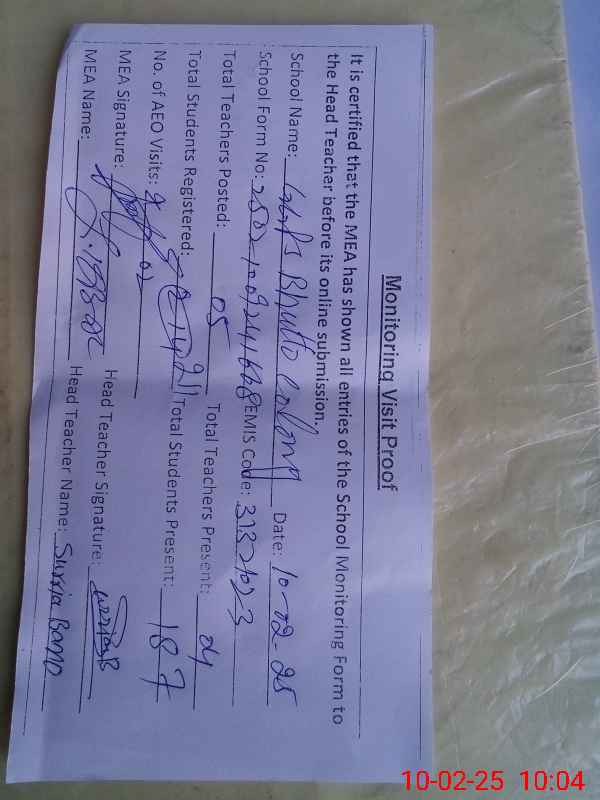 Monitoring Visit Proof
It is certified that the MEA has shown all entries of the School Monitoring Form to
the Head Teacher before its online submission.
School Name: Bhutto colony Date: 10-02-25
School Form No: EMIS Code: 31321023
Total Teachers Posted: 05 Total Teachers Present: 04
Total Students Registered: Total Students Present: 187
No. of AEO Visits: 02
MEA Signature: Head Teacher Signature:
MEA Name: Head Teacher Name: Surria Bano
10-02-25 10:04